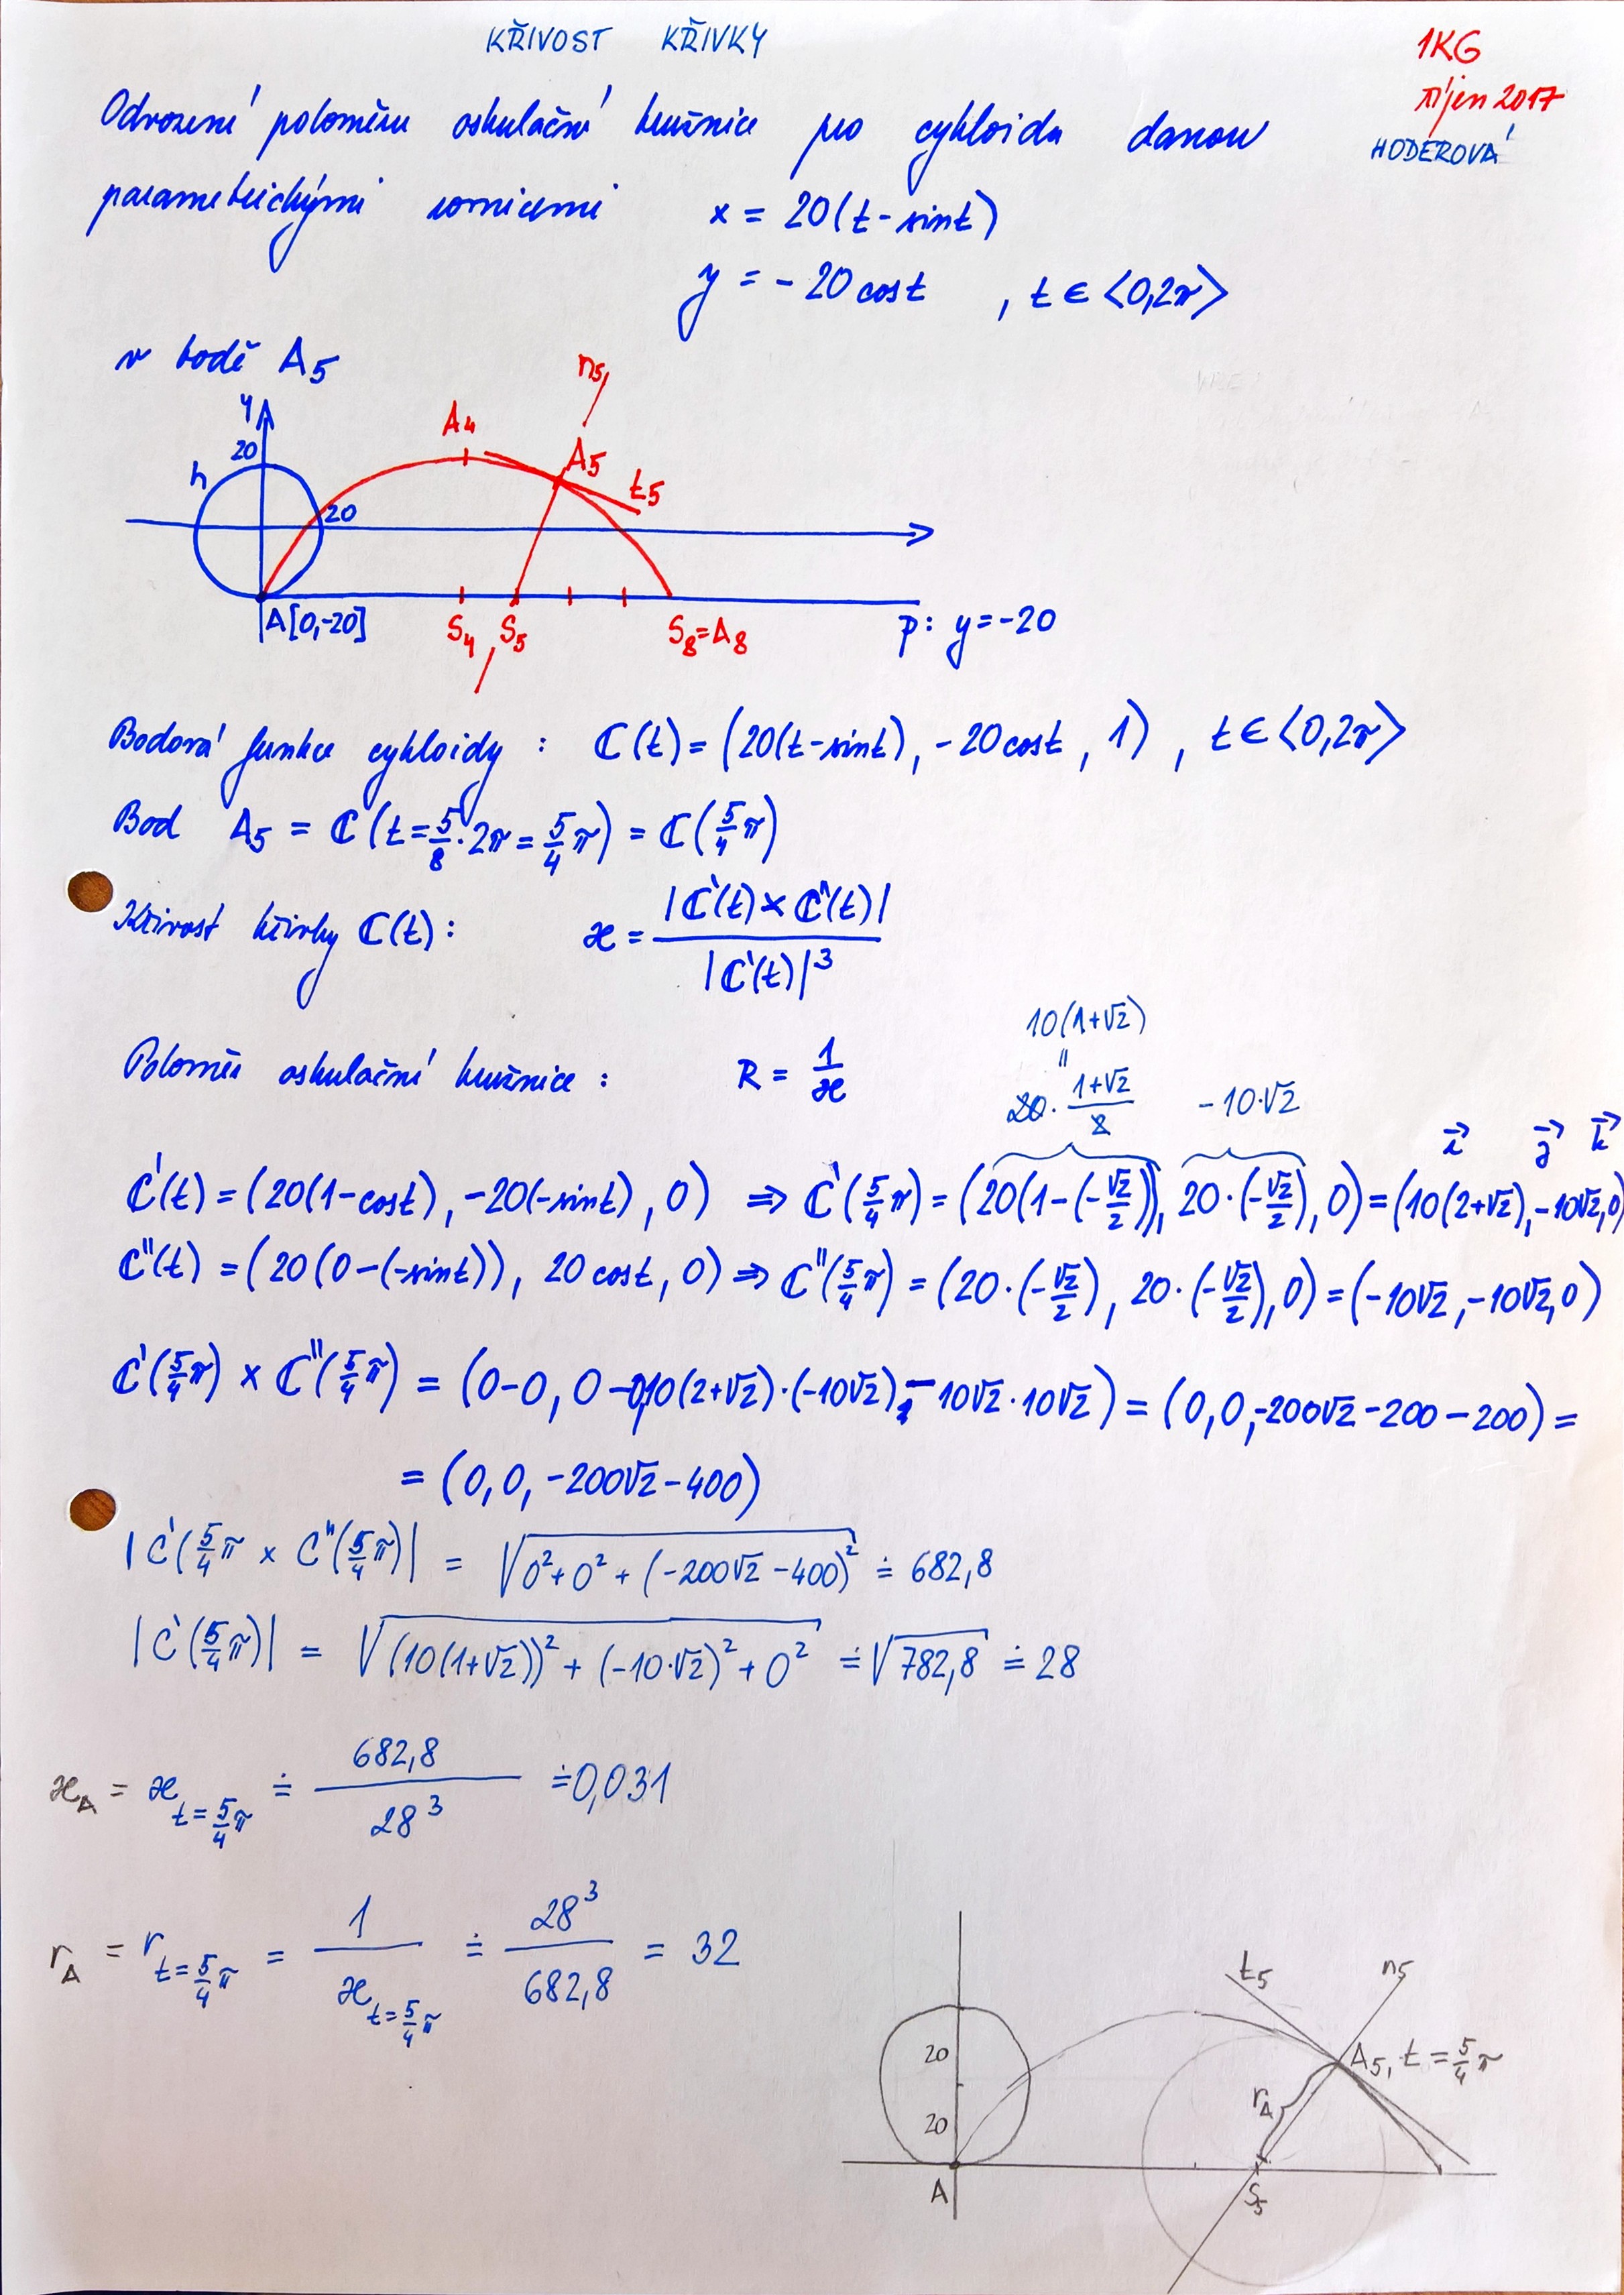 KŘIVOST KŘIVKY
1KG
říjen 2017
HODEROVÁ
Odvození poloměru oskulační kružnice pro cykloidu danou
parametrickými rovnicemi x = 20(t-sint)
y = -20cost , t ∈ ⟨0,2π⟩
v bodě A₅
n₅
y
20
h
A₄
A₅
t₅
20
A[0,-20]
S₄ S₅ S₈=A₈ p: y=-20
Bodová funkce cykloidy : ℂ(t) = (20(t-sint), -20cost, 1) , t ∈ ⟨0,2π⟩
Bod A₅ = ℂ(t = 5/8 · 2π = 5/4 π) = ℂ(5/4 π)
Křivost křivky ℂ(t) : æ = |ℂ'(t) × ℂ''(t)| / |ℂ'(t)|³
10(1+√2)
"
Poloměr oskulační kružnice : R = 1/æ 20 · (1+√2)/2 -10·√2
i⃗ j⃗ k⃗
ℂ'(t) = (20(1-cost), -20(-sint), 0) ⇒ ℂ'(5/4 π) = (20(1-(-√2/2)), 20·(-√2/2), 0) = (10(2+√2), -10√2, 0)
ℂ''(t) = (20(0-(-sint)), 20cost, 0) ⇒ ℂ''(5/4 π) = (20·(-√2/2), 20·(-√2/2), 0) = (-10√2, -10√2, 0)
ℂ'(5/4 π) × ℂ''(5/4 π) = (0-0, 0-0, 10(2+√2)·(-10√2) - 10√2·10√2) = (0, 0, -200√2 - 200 - 200) =
= (0, 0, -200√2 - 400)
|ℂ'(5/4 π × ℂ''(5/4 π)| = √(0² + 0² + (-200√2 - 400)²) ≐ 682,8
|ℂ'(5/4 π)| = √((10(1+√2))² + (-10·√2)² + 0²) ≐ √782,8 ≐ 28
æ_A = æ_{t=5/4 π} ≐ 682,8 / 28³ ≐ 0,031
r_A = r_{t=5/4 π} = 1 / æ_{t=5/4 π} ≐ 28³ / 682,8 = 32
t₅
n₅
20
A₅, t = 5/4 π
r_A
20
A
S₅